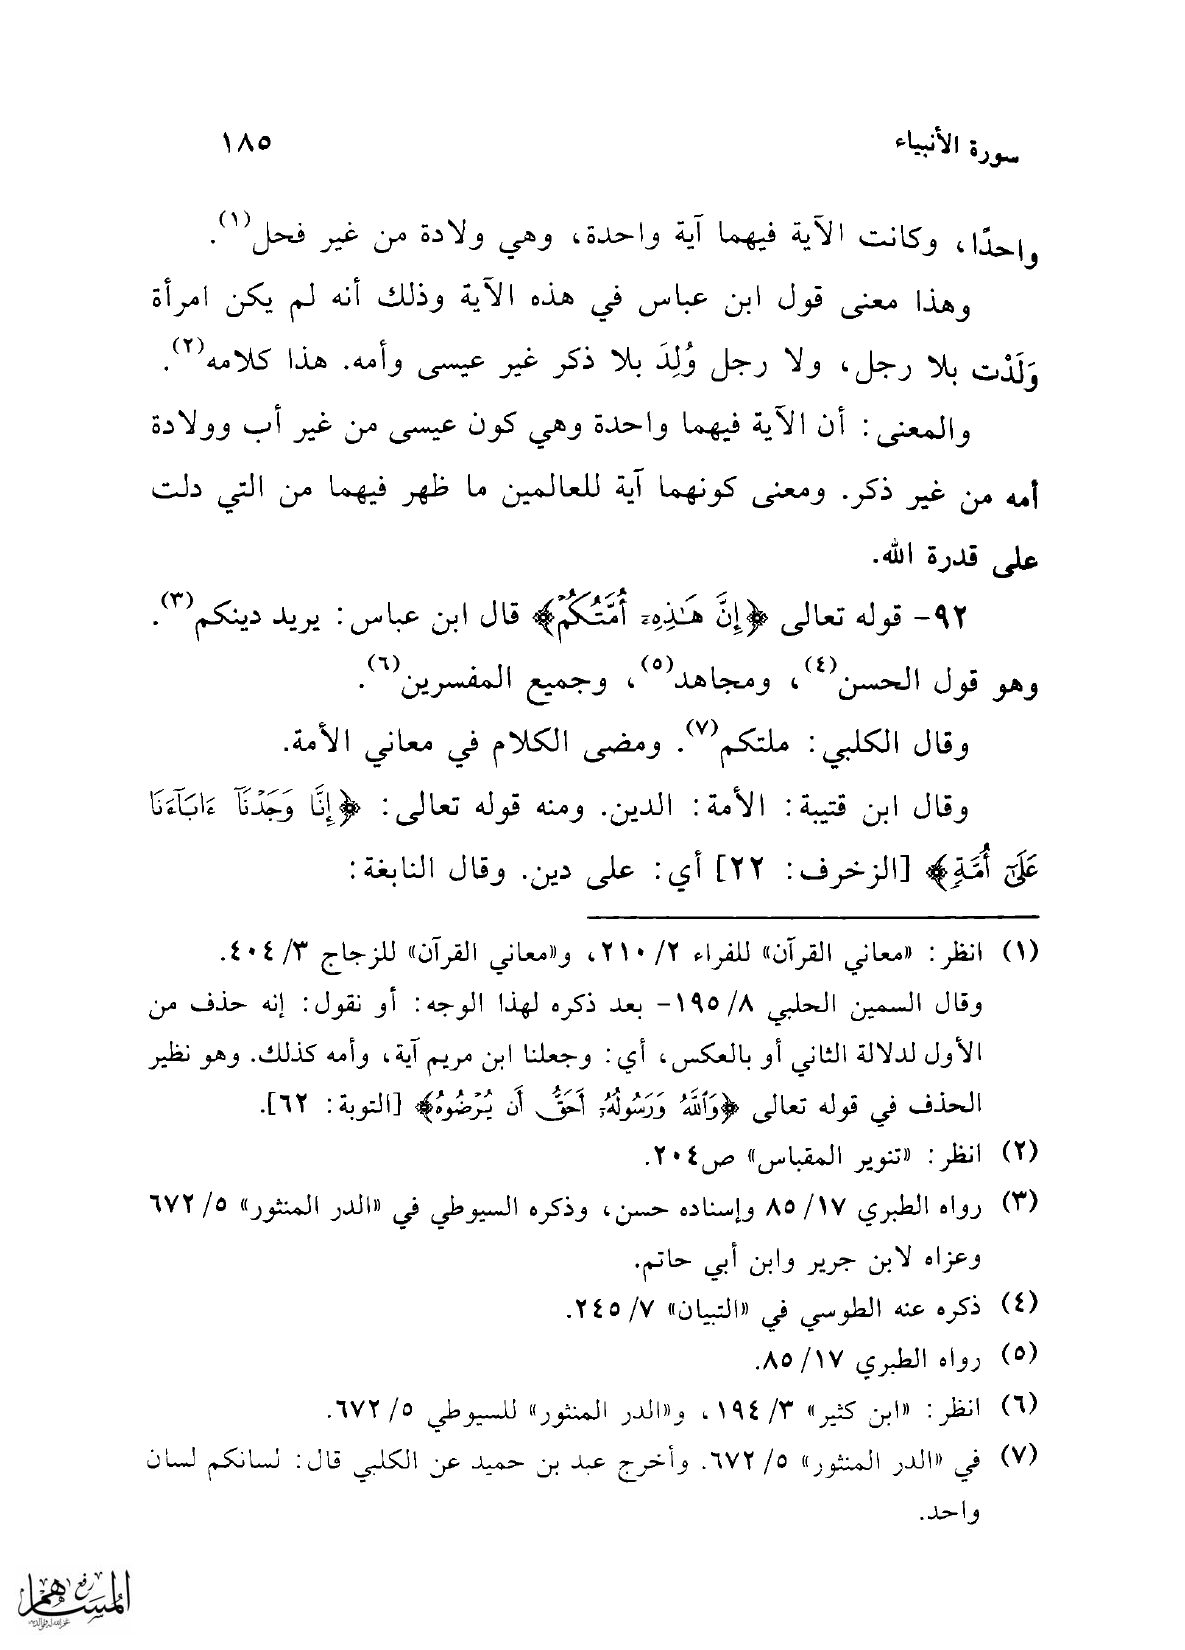 سورة الأنبياء ١٨٥
واحدًا، وكانت الآية فيهما آية واحدة، وهي ولادة من غير فحل(١).
وهذا معنى قول ابن عباس في هذه الآية وذلك أنه لم يكن امرأة
وَلَدْت بلا رجل، ولا رجل وُلِدَ بلا ذكر غير عيسى وأمه. هذا كلامه(٢).
والمعنى: أن الآية فيهما واحدة وهي كون عيسى من غير أب وولادة
أمه من غير ذكر. ومعنى كونهما آية للعالمين ما ظهر فيهما من التي دلت
على قدرة الله.
٩٢- قوله تعالى ﴿إِنَّ هَـٰذِهِۦٓ أُمَّتُكُمْ﴾ قال ابن عباس: يريد دينكم(٣).
وهو قول الحسن(٤)، ومجاهد(٥)، وجميع المفسرين(٦).
وقال الكلبي: ملتكم(٧). ومضى الكلام في معاني الأمة.
وقال ابن قتيبة: الأمة: الدين. ومنه قوله تعالى: ﴿إِنَّا وَجَدْنَآ ءَابَآءَنَا
عَلَىٰٓ أُمَّةٍ﴾ [الزخرف: ٢٢] أي: على دين. وقال النابغة:
(١) انظر: «معاني القرآن» للفراء ٢/ ٢١٠، و«معاني القرآن» للزجاج ٣/ ٤٠٤.
وقال السمين الحلبي ٨/ ١٩٥- بعد ذكره لهذا الوجه: أو نقول: إنه حذف من
الأول لدلالة الثاني أو بالعكس، أي: وجعلنا ابن مريم آية، وأمه كذلك. وهو نظير
الحذف في قوله تعالى ﴿وَٱللَّهُ وَرَسُولُهُۥٓ أَحَقُّ أَن يُرْضُوهُ﴾ [التوبة: ٦٢].
(٢) انظر: «تنوير المقباس» ص٢٠٤.
(٣) رواه الطبري ١٧/ ٨٥ وإسناده حسن، وذكره السيوطي في «الدر المنثور» ٥/ ٦٧٢
وعزاه لابن جرير وابن أبي حاتم.
(٤) ذكره عنه الطوسي في «التبيان» ٧/ ٢٤٥.
(٥) رواه الطبري ١٧/ ٨٥.
(٦) انظر: «ابن كثير» ٣/ ١٩٤، و«الدر المنثور» للسيوطي ٥/ ٦٧٢.
(٧) في «الدر المنثور» ٥/ ٦٧٢. وأخرج عبد بن حميد عن الكلبي قال: لسانكم لسان
واحد.
رفع
المساهم